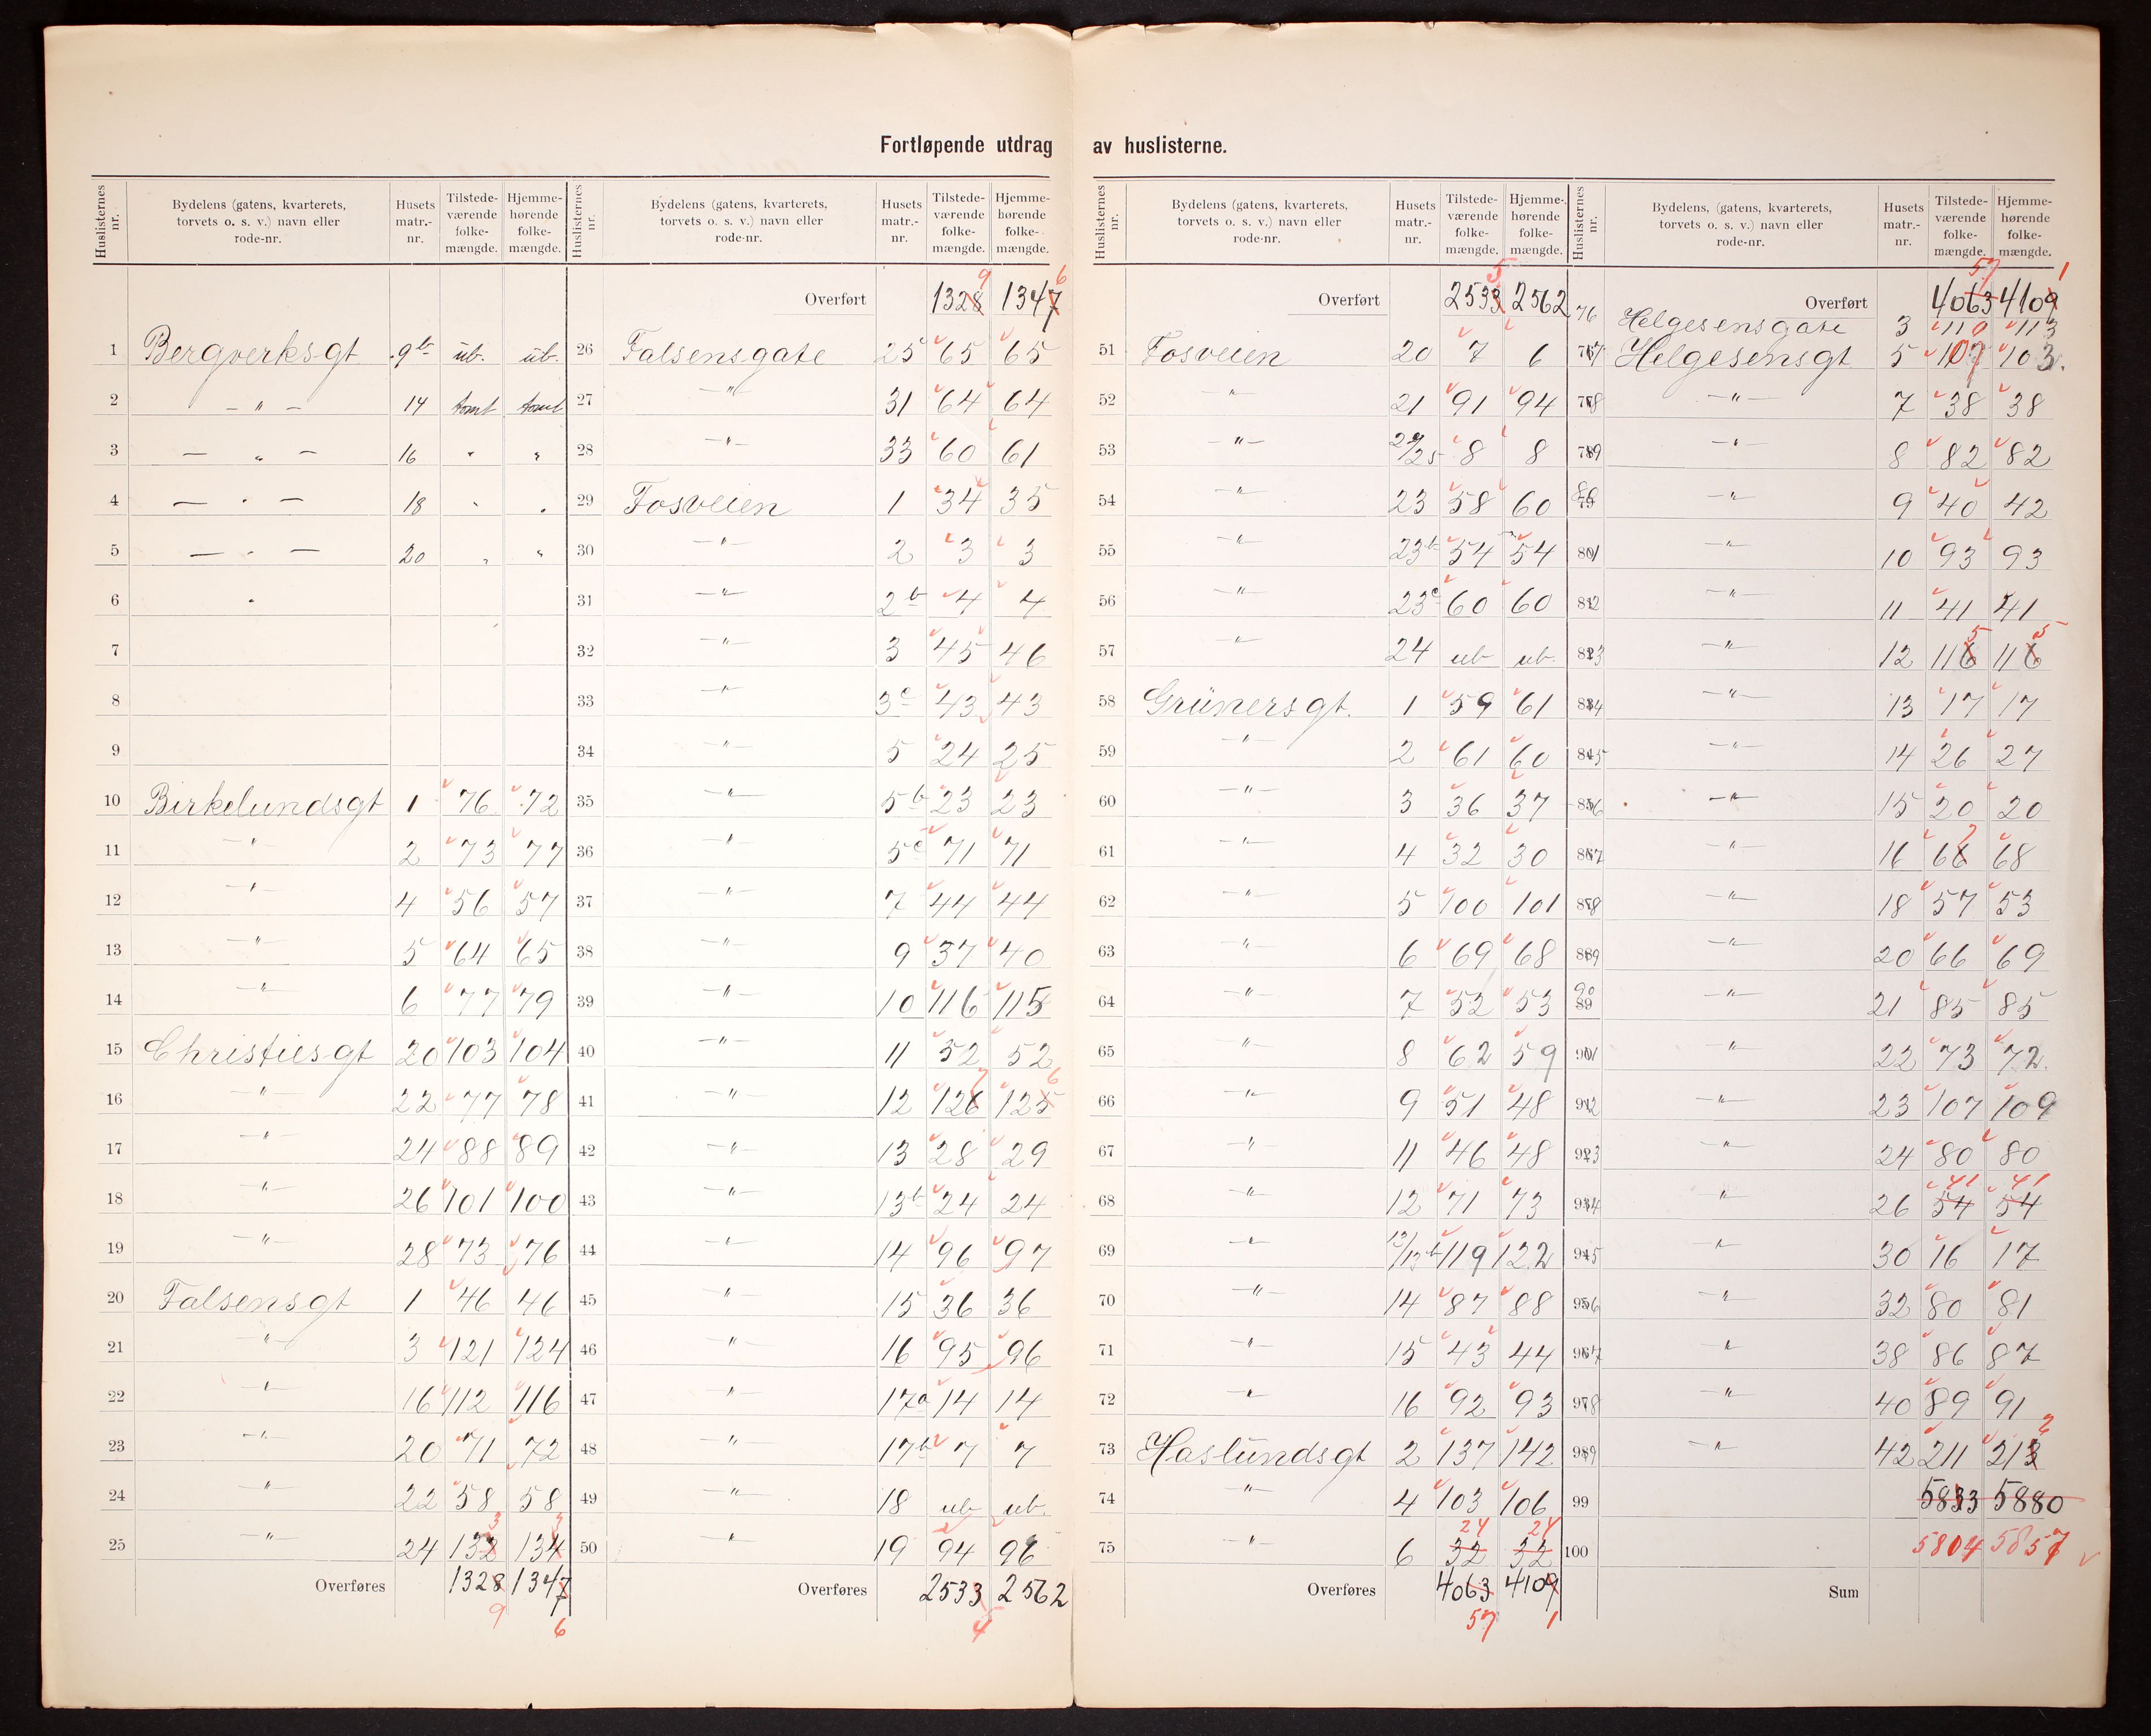 Fortløpende utdrag av huslisterne.
Huslisternes nr. | Bydelens (gatens, kvarterets, torvets o. s. v.) navn eller rode-nr. | Husets matr.-nr. | Tilstede-værende folke-mængde. | Hjemme-hørende folke-mængde.
1 Bergverksgt 9b ub. ub.
2 — " — 14 tomt tomt
3 — " — 16 " "
4 — " — 18 " "
5 — " — 20 " "
6
7
8
9
10 Birkelundsgt 1 76 72
11 — " — 2 73 77
12 — " — 4 56 57
13 — " — 5 64 65
14 — " — 6 77 79
15 Christiesgt 20 103 104
16 — " — 22 77 78
17 — " — 24 88 89
18 — " — 26 101 100
19 — " — 28 73 76
20 Falsensgt 1 46 46
21 — " — 3 121 124
22 — " — 16 112 116
23 — " — 20 71 72
24 — " — 22 58 58
25 — " — 24 132 3 134 3
Overføres 1328 1347
9 6
Huslisternes nr. | Bydelens (gatens, kvarterets, torvets o. s. v.) navn eller rode-nr. | Husets matr.-nr. | Tilstede-værende folke-mængde. | Hjemme-hørende folke-mængde.
Overført 1328 9 1347 6
26 Falsensgate 25 65 65
27 — " — 31 64 64
28 — " — 33 60 61
29 Fosveien 1 34 35
30 — " — 2 3 3
31 — " — 2b 4 4
32 — " — 3 45 46
33 — " — 3c 43 43
34 — " — 5 24 25
35 — " — 5b 23 23
36 — " — 5c 71 71
37 — " — 7 44 44
38 — " — 9 37 40
39 — " — 10 116 115
40 — " — 11 52 52
41 — " — 12 126 7 125 6
42 — " — 13 28 29
43 — " — 13b 24 24
44 — " — 14 96 97
45 — " — 15 36 36
46 — " — 16 95 96
47 — " — 17a 14 14
48 — " — 17b 7 7
49 — " — 18 ub ub.
50 — " — 19 94 96
Overføres 2533 2562
Huslisternes nr. | Bydelens (gatens, kvarterets, torvets o. s. v.) navn eller rode-nr. | Husets matr.-nr. | Tilstede-værende folke-mængde. | Hjemme-hørende folke-mængde.
Overført 2533 5 2562
51 Fosveien 20 7 6
52 — " — 21 91 94
53 — " — 8 8
54 — " — 23 58 60
55 — " — 23b 54 54
56 — " — 23c 60 60
57 — " — 24 ub ub.
58 Grünersgt. 1 59 61
59 — " — 2 61 60
60 — " — 3 36 37
61 — " — 4 32 30
62 — " — 5 100 101
63 — " — 6 69 68
64 — " — 7 52 53
65 — " — 8 62 59
66 — " — 9 51 48
67 — " — 11 46 48
68 — " — 12 71 73
69 — " — 119 122
70 — " — 14 87 88
71 — " — 15 43 44
72 — " — 16 92 93
73 Haslundsgt 2 137 142
74 — " — 4 103 106
75 — " — 6 32 24 32 24
Overføres 4063 4109
57 1
Huslisternes nr. | Bydelens, (gatens, kvarterets, torvets o. s. v.) navn eller rode-nr. | Husets matr.-nr. | Tilstede-værende folke-mængde. | Hjemme-hørende folke-mængde.
Overført 4063 57 4109 1
76 Helgesensgate 3 110 113
77 Helgesensgt 5 107 103.
78 — " — 7 38 38
79 — " — 8 82 82
80 — " — 9 40 42
81 — " — 10 93 93
82 — " — 11 41 41
83 — " — 12 116 5 116 5
84 — " — 13 17 17
85 — " — 14 26 27
86 — " — 15 20 20
87 — " — 16 66 7 68
88 — " — 18 57 53
89 — " — 20 66 69
90 — " — 21 85 85
91 — " — 22 73 72.
92 — " — 23 107 109
93 — " — 24 80 80
94 — " — 26 54 41 54 41
95 — " — 30 16 17
96 — " — 32 80 81
97 — " — 38 86 87
98 — " — 40 89 91
99 — " — 42 211 213 2
99 5833 5880
100 5804 5857
Sum